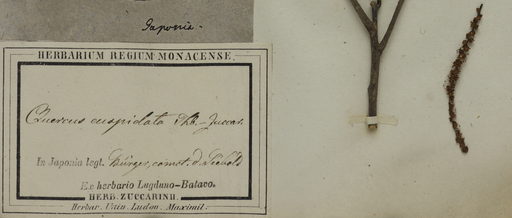 Japonia.
HERBARIUM REGIUM MONACENSE.
Quercus cuspidata Thb. Zuccar.
In Japonia legt. Bürger, comt. d. Siebold
Ex herbario Lugduno-Batavo.
HERB. ZUCCARINII.
Herbar. Univ. Ludov. Maximil.